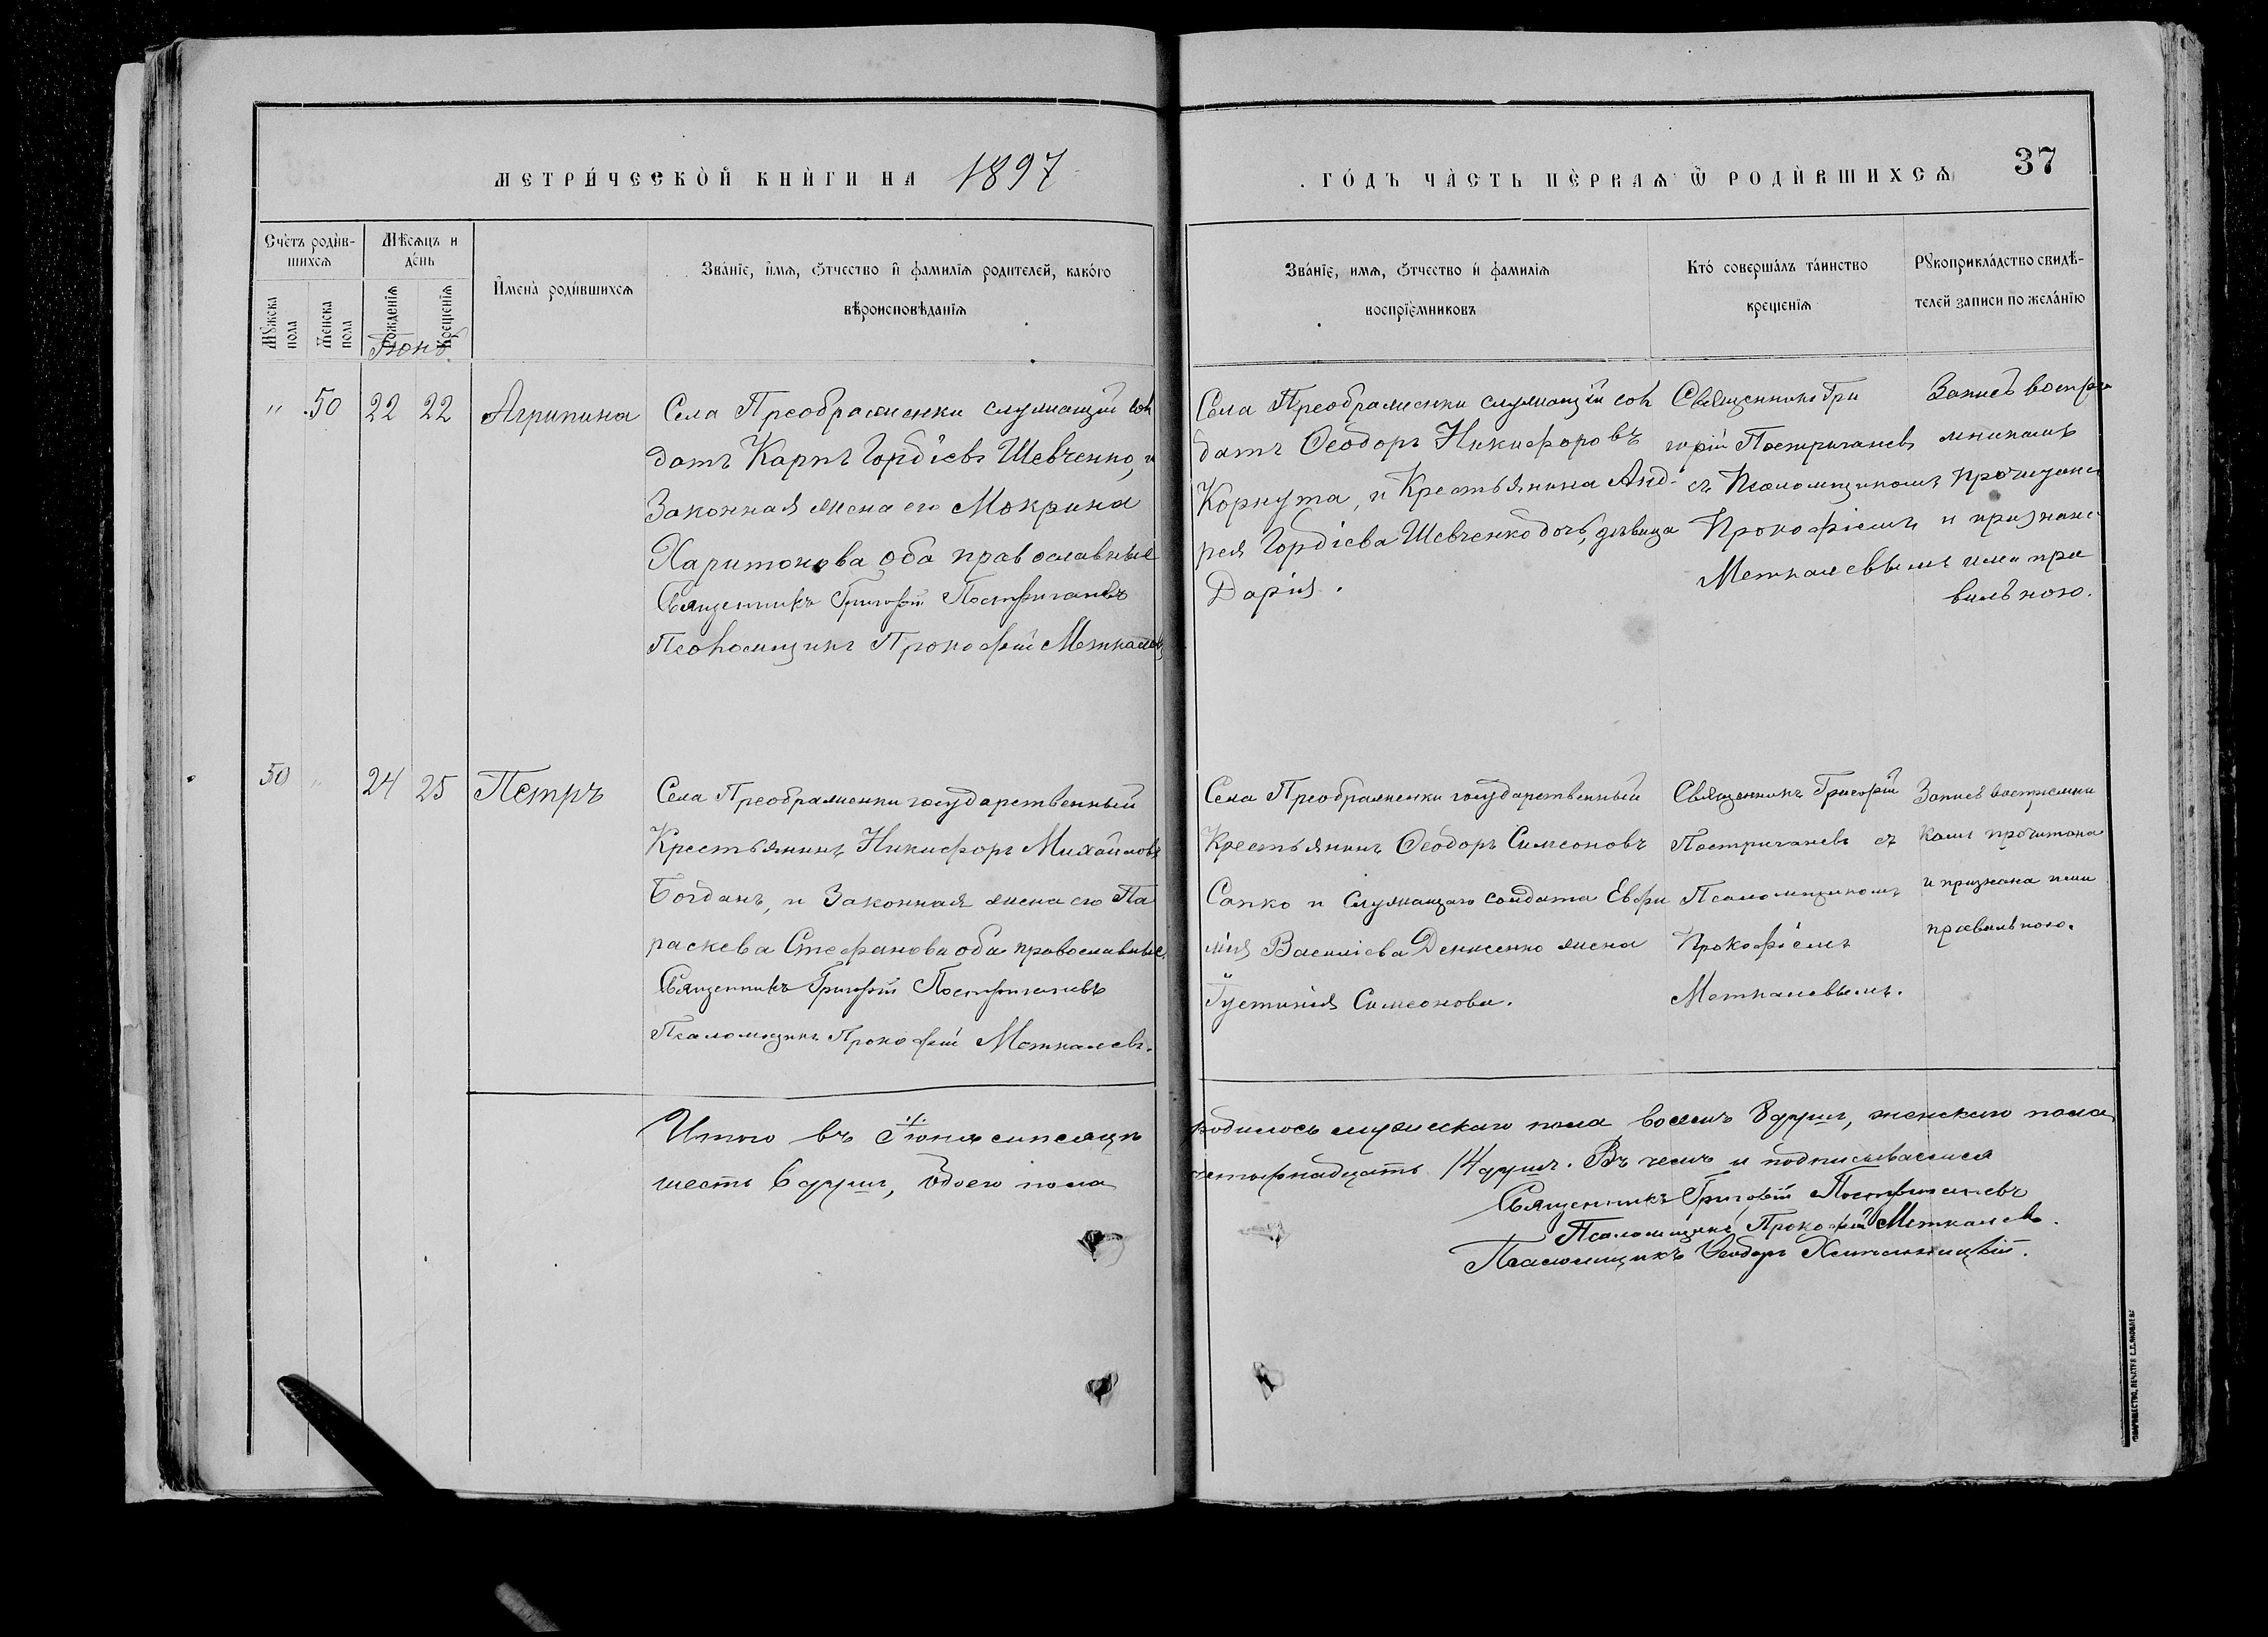 МЕТРИ́ЧЕСКОЙ КНИ́ГИ НА 1897
ГО́ДЪ ЧА́СТЬ ПЕ́РВАЯ Ѡ РОДИ́ВШИХСЯ 37
Сче́тъ роди́в-
шихся
Мѣ́сяцъ и
де́нь
Мꙋ́жска
пола
Же́нска
пола
Рожде́нїя
Креще́нїя
Імена̀ роди́вшихся
Зва́нїе, и́мя, о́тчество и҆ фами́лїя роди́телей, како́го
вѣроисповѣ́данїя
Зва́нїе, имя, о́тчество и҆ фами́лїя
воспрїе́мниковъ
Кто́ соверша́лъ та́инство
креще́нїя
Рꙋкоприкла́дство свидѣ́-
телей записи по жела́нїю
Іюнь
" 50 22 22 Агрипина
Села Преображенки служащій сол
датъ Карпъ Гордіевъ Шевченко, и
Законная жена его Мокрина
Харитонова оба православные
Священникъ Григорій Постригачевъ
Псаломщикъ Прокофій Меткалевъ
Села Преображенки служащій сол
датъ Ѳеодоръ Никифоровъ
Корнута, и Крестьянина Анд-
рея Гордіева Шевченко дочь, дѣвица
Дарія.
Священникъ Гри
горій Постригачевъ
съ Псаломщикомъ
Прокофіемъ
Меткалевымъ
Запись воспріе
мниками
прочитана
и признана
ими пра
вильною.
50 " 24 25 Петръ
Села Преображенки государственный
Крестьянинъ Никифоръ Михайловъ
Богданъ, и Законная жена его Па
раскева Стефанова оба православные.
Священникъ Григорій Постригачевъ
Псаломщикъ Прокофій Меткалевъ.
Села Преображенки государственный
Крестьянинъ Ѳеодоръ Симеоновъ
Сапко и Служащаго солдата Евфи
мія Василіева Денисенко жена
Іустинія Симеонова.
Священникъ Григорій
Постригачевъ съ
Псаломщикомъ
Прокофіемъ
Меткалевымъ.
Запись воспріемни
ками прочитана
и признана ими
правильною.
Итого въ Іюнѣ мѣсяцѣ родилось мужескаго пола восемь 8 душъ, женскаго пола
шесть 6 душъ, обоего пола четырнадцать 14 душъ. Въ чемъ и подписываемся
Священникъ Григорій Постригачевъ
Псаломщикъ Прокофій Меткалевъ.
Псаломщикъ Ѳеодоръ Хмельницкій.